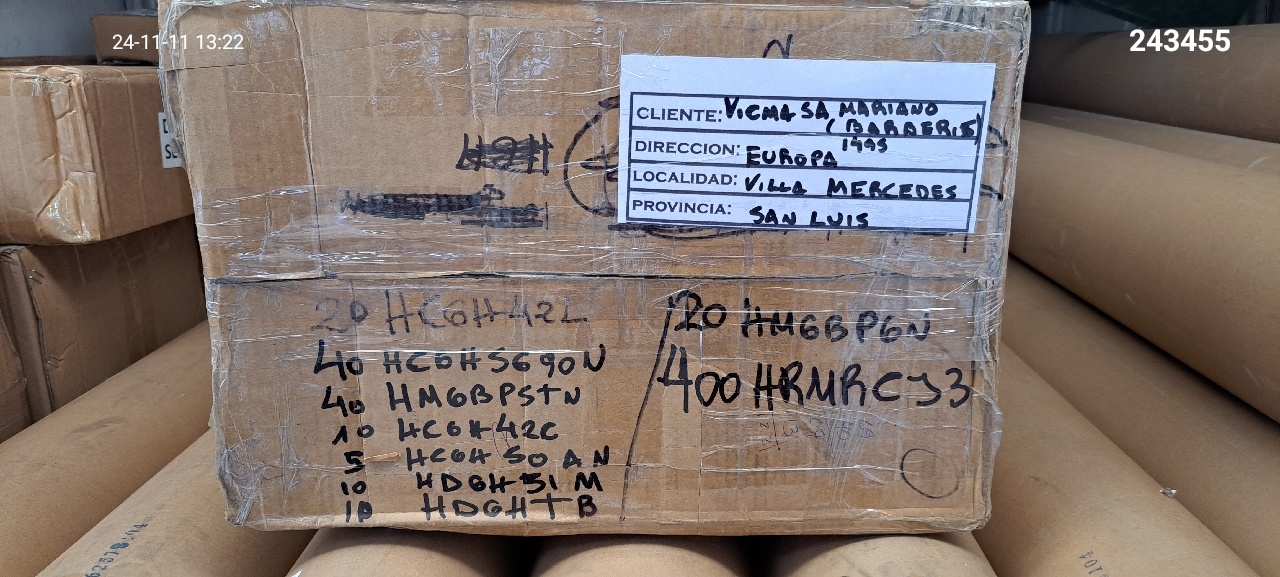 24-11-11 13:22
243455
CLIENTE: VICMA SA MARIANO
(BARBERIS)
DIRECCION: EUROPA 1495
LOCALIDAD: VILLA MERCEDES
PROVINCIA: SAN LUIS
20 HCGH42L
40 HCGHS690N
40 HMGBPSTN
10 HCGH42C
5 HCGH50AN
10 HDGH51M
10 HDGHTB
120 HMGBPGN
400 HRMRCJ3
104